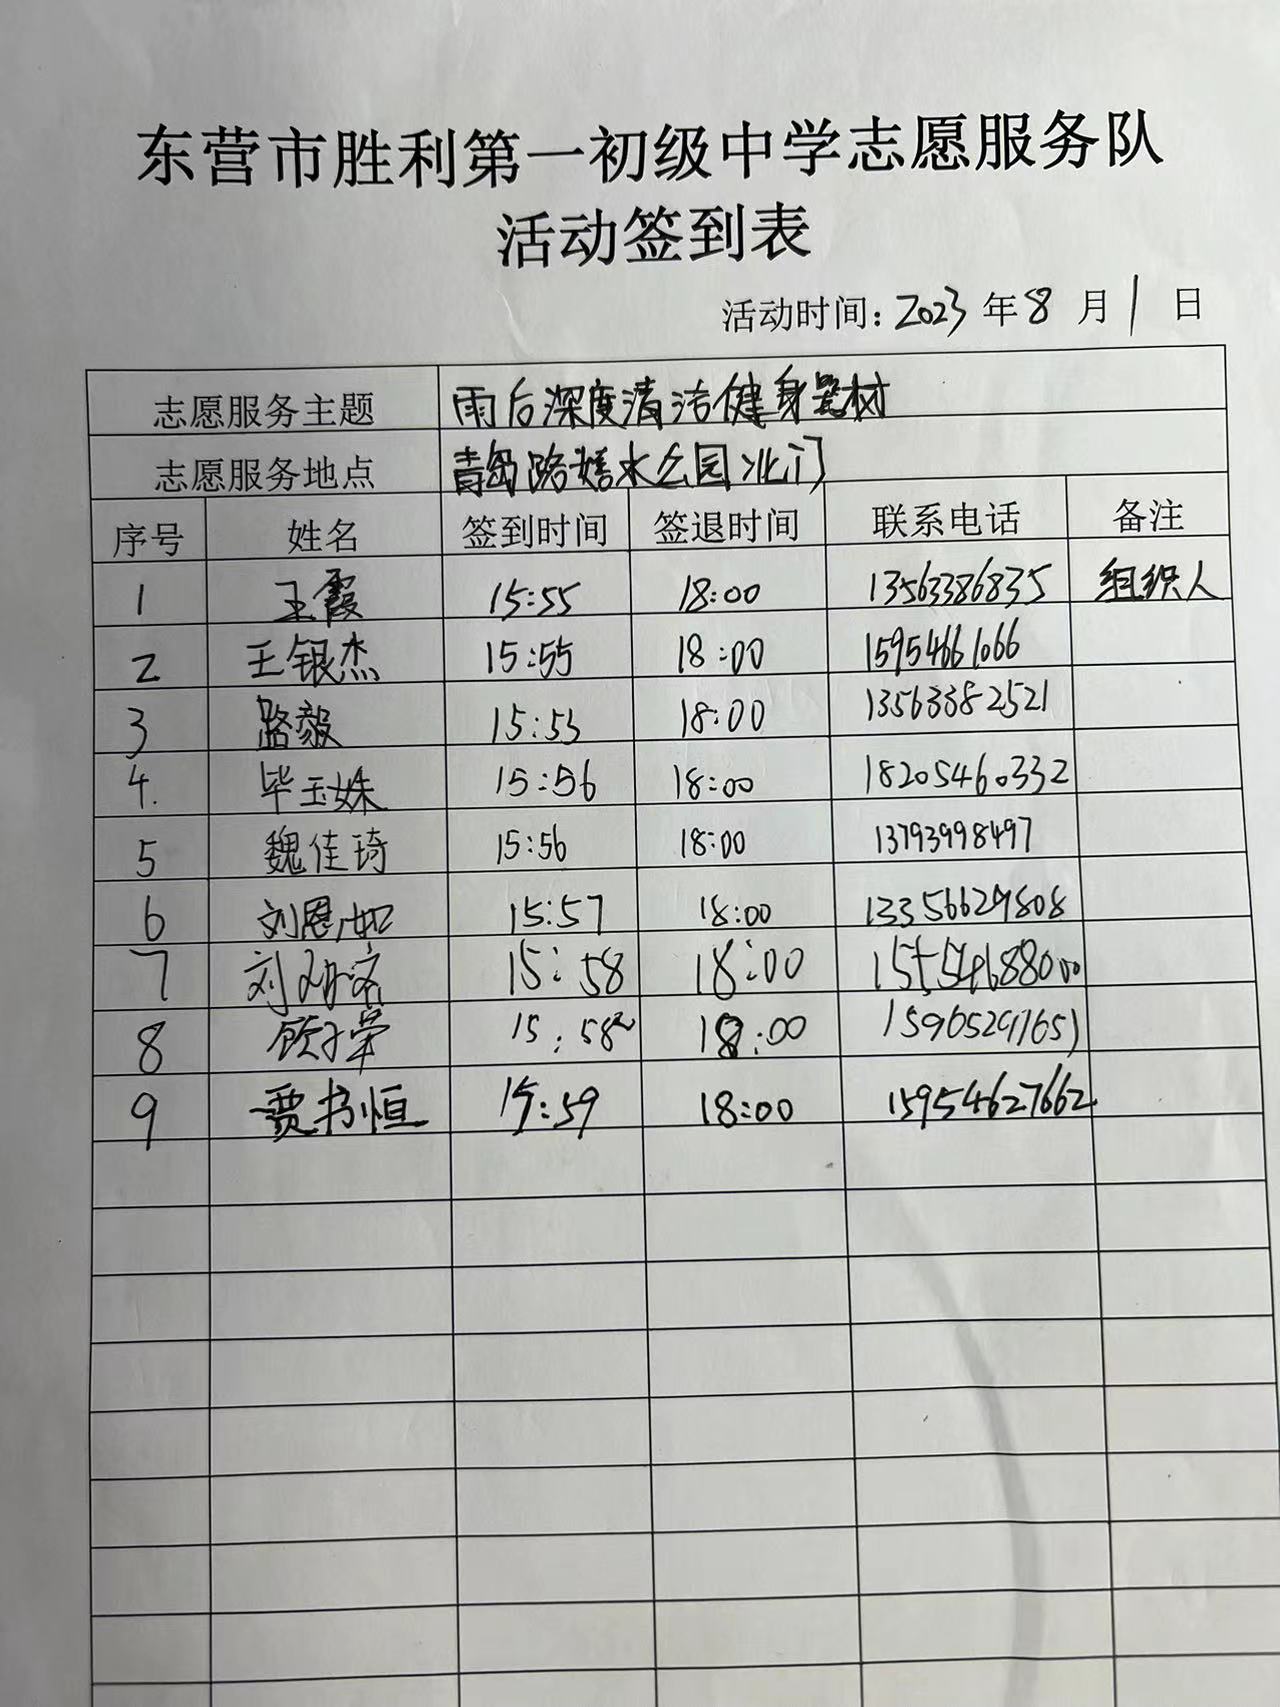 东营市胜利第一初级中学志愿服务队
活动签到表
活动时间：2023 年 8 月 1 日
志愿服务主题 雨后深度清洁健身器材
志愿服务地点 青岛路嬉水公园北门
序号 姓名 签到时间 签退时间 联系电话 备注
1 王霞 15:55 18:00 13563386835 组织人
2 王银杰 15:55 18:00 15954661066
3 路毅 15:55 18:00 13563382521
4. 毕玉姝 15:56 18:00 18205460332
5 魏佳琦 15:56 18:00 13793998497
6 刘恩如 15:57 18:00 13356629808
7 刘 15:58 18:00
8 顾子荣 15:58 18:00 15905291651
9 贾书恒 15:59 18:00 15954627662